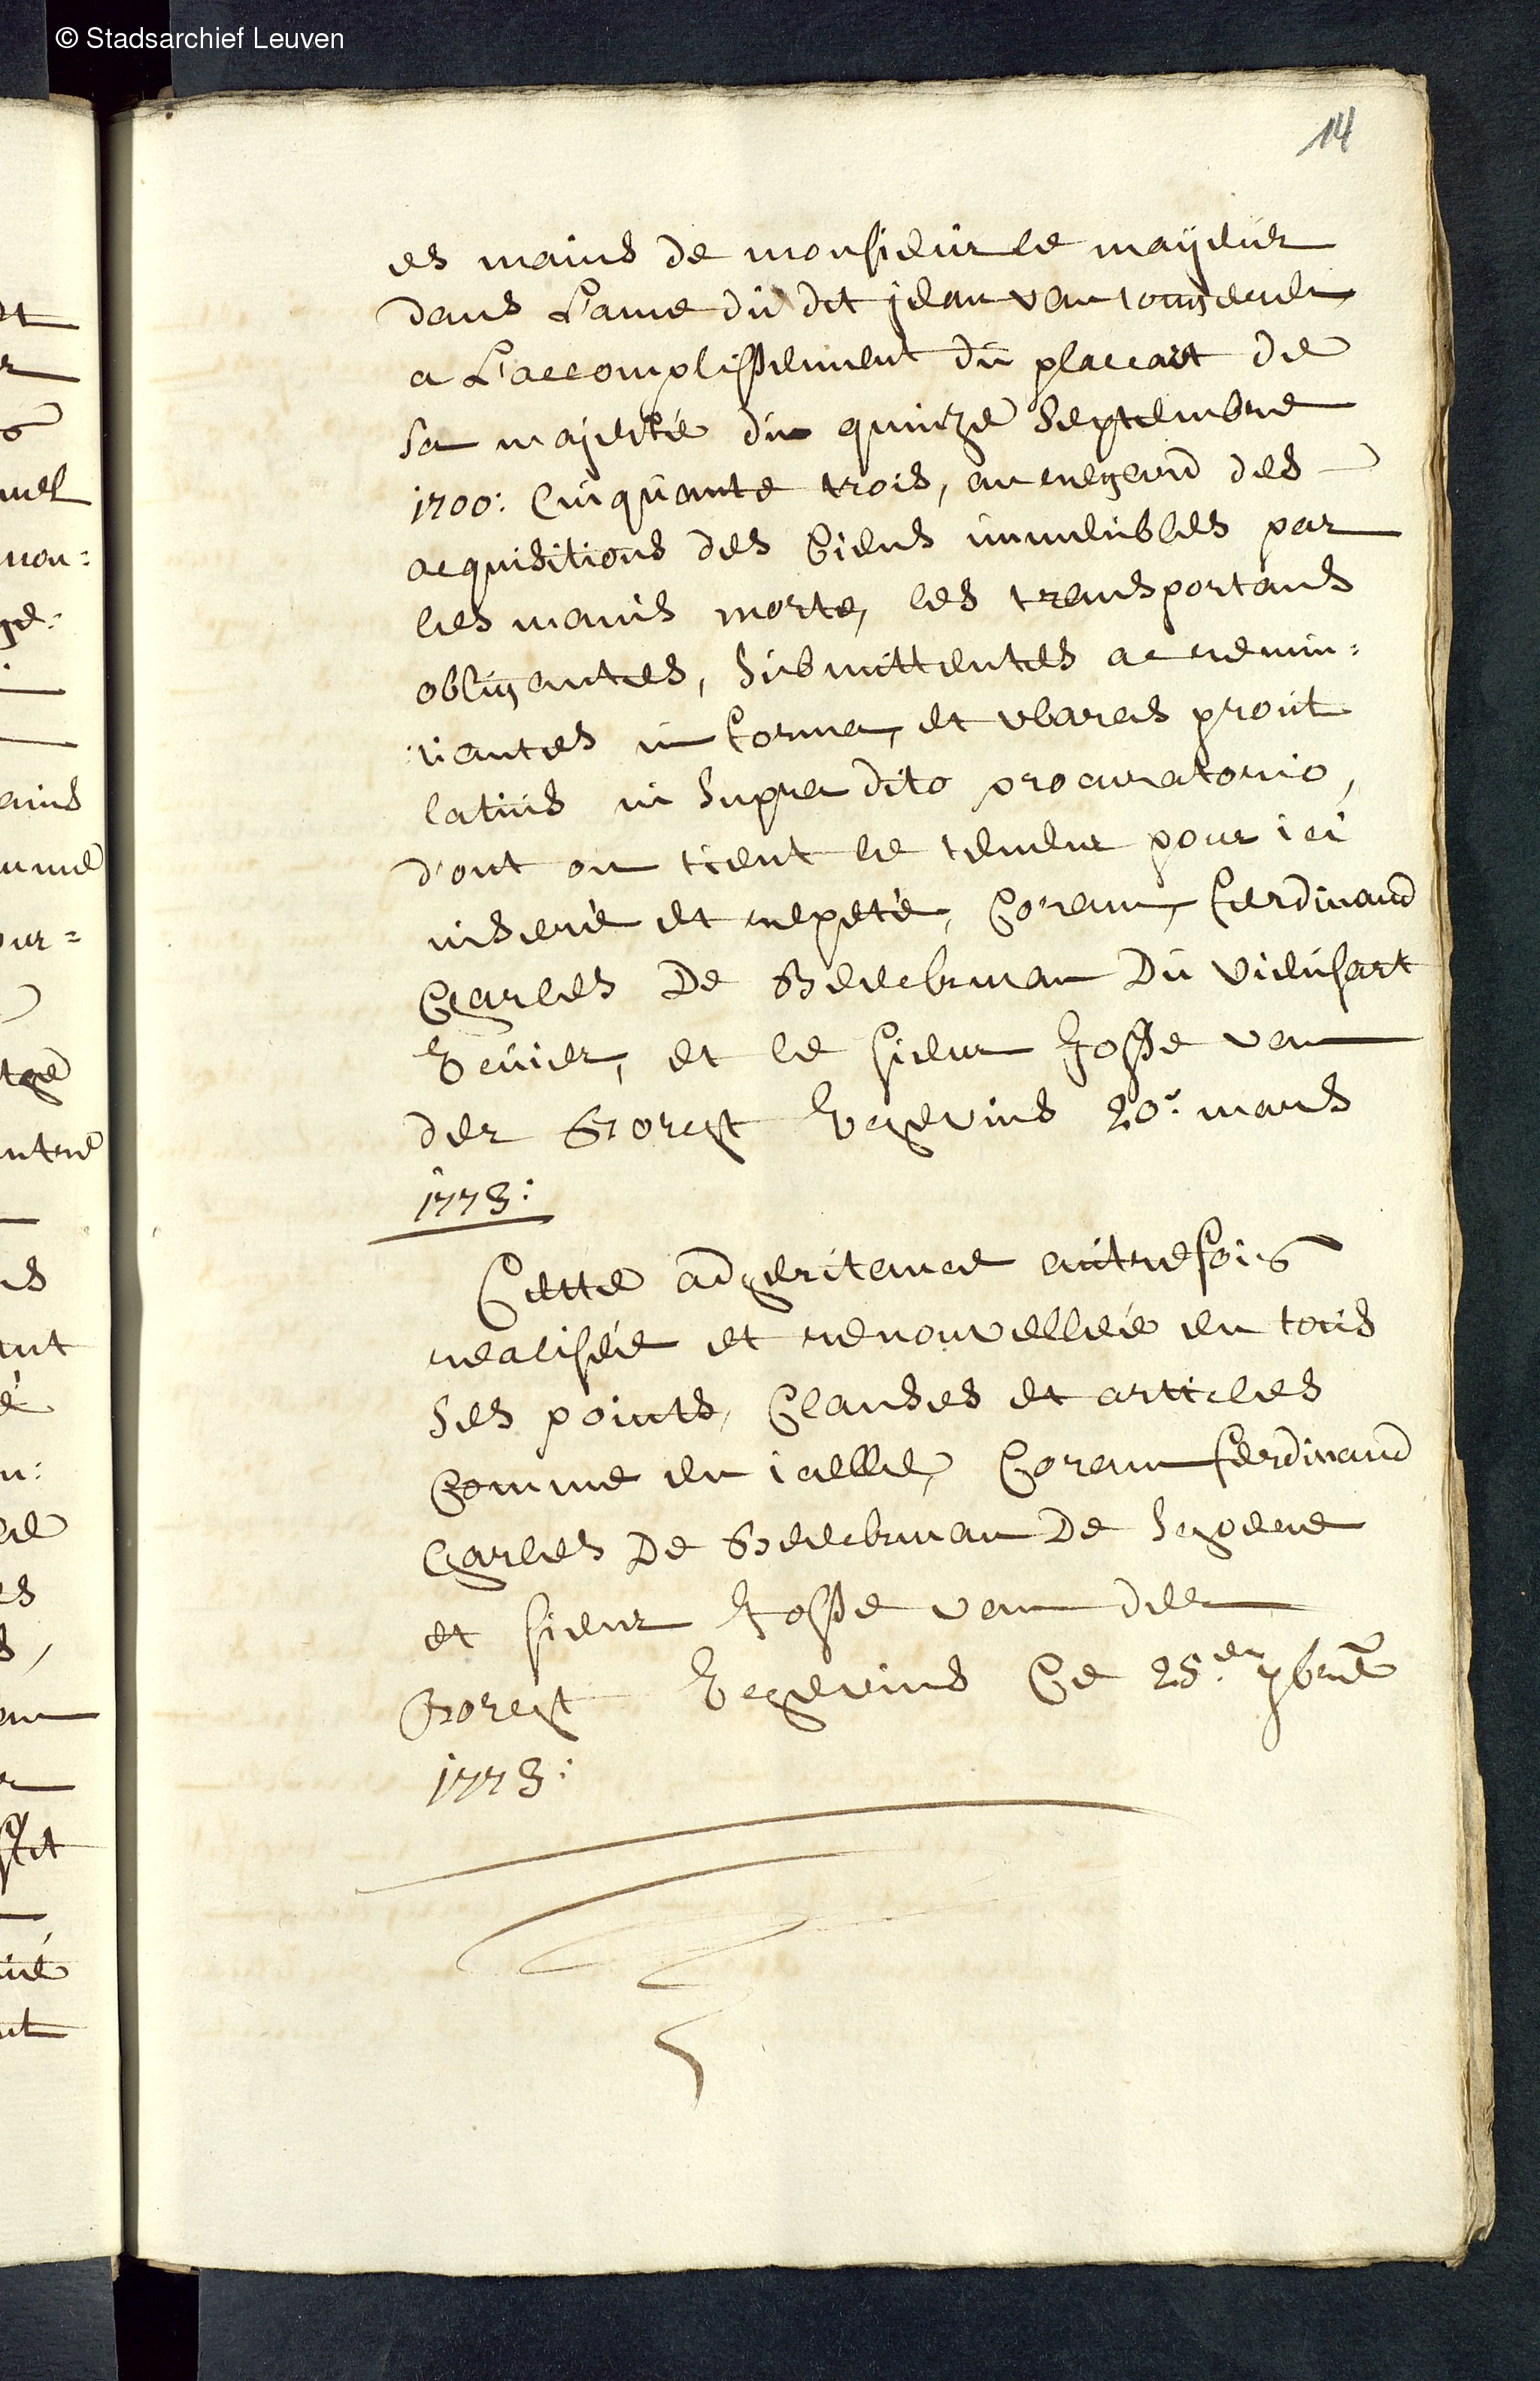 © Stadsarchief Leuven
14
es mains de monsieur le mayeur
dans L'ame du dit jean van
a L'accomplissement du placcait de
sa majesté du quinze Septembre
1700: Cinquante trois, au regard des
acquisitions des biens immeubles par
les mains morte, les transportans
obligantes, submittentes ac renun:
:tiantes in forma, et waras prout
latius in supra dito procuratorio,
d'ont on tient le teneur pour ici
inseré et repeté, Coram, ferdinand
Charles De Beeckman Du vieusart
Ecuier, et le sieur Josse van
der Borcht Echevins 20.e mars
1773:
Cette adheritance autrefois
realisée et renouvelleé en tous
ses points, Clauses et articles
Comme en icelle, Coram ferdinand
Charles De Beeckman De
et sieur Josse van der
Borcht Echevins Ce 25.em
1773: